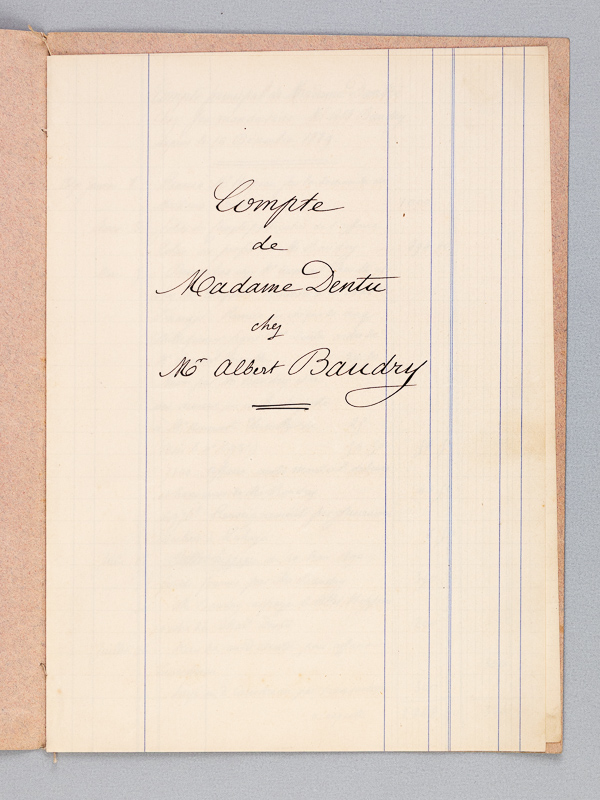 Compte
de
Madame Dentu
chez
Mr Albert Baudry